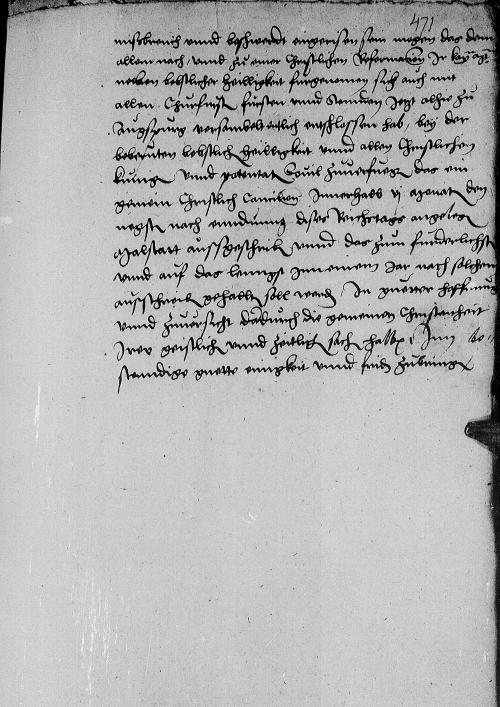 471
misbreuch unnd beschwerdt eingerisen sein mogen das dem
allem nach unnd zu einer Christlichen Reformation Ir kay
neben bebstlicher heilligkeit furgenomen sich auch mit
allen Churfursten fursten unnd Stennden Jetzt alhie zu
Augspurg versamelt entschlossen hab, bey der
bebstlich heilligkeit unnd allen Christlichen
kunig unnd potentaten souil zuuerfuegen das ein
gemein Christlich Concilium Innerhalb vj Monat den
negst nach enndung dises Reichstags an gelegen
Malstatt aussgeschriben unnd das zum furderlichsten
unnd auf das lenngst Inn einem Jar nach solchem
ausschreiben gehalten soll werden, In guetter hoffnung
unnd zuuersicht dadurch die gemeinen Christenheit
Irer geistlich unnd zeitlich sach halben Inn be-
stenndige guette einigkeit unnd friden zubringen